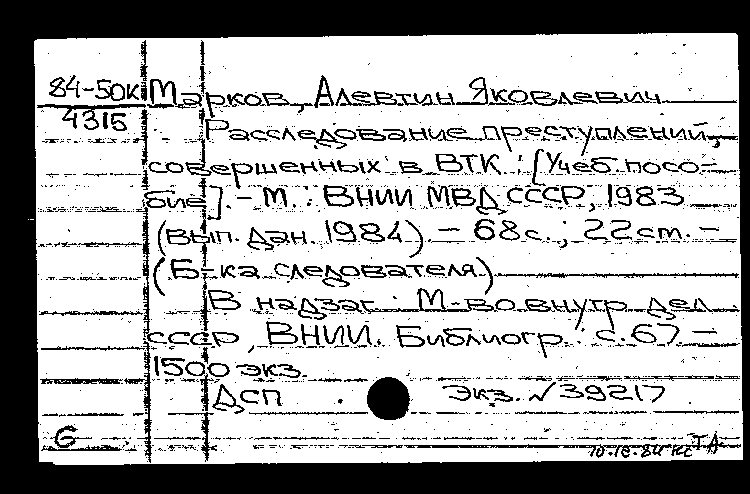 84-50К Марков, Алевтин Яковлевич
4315 Расследование преступлений,
совершенных в ВТК : [Учеб. посо-
бие]. - М. : ВНИИ МВД СССР, 1983
(вып. дан. 1984). - 68с. ; 22см. -
(Б-ка следователя)
В надзаг. : М-во внутр. дел
СССР, ВНИИ. Библиогр. : с.67 -
1500 экз.
ДСП . Экз. № 39217
6
Т.А.